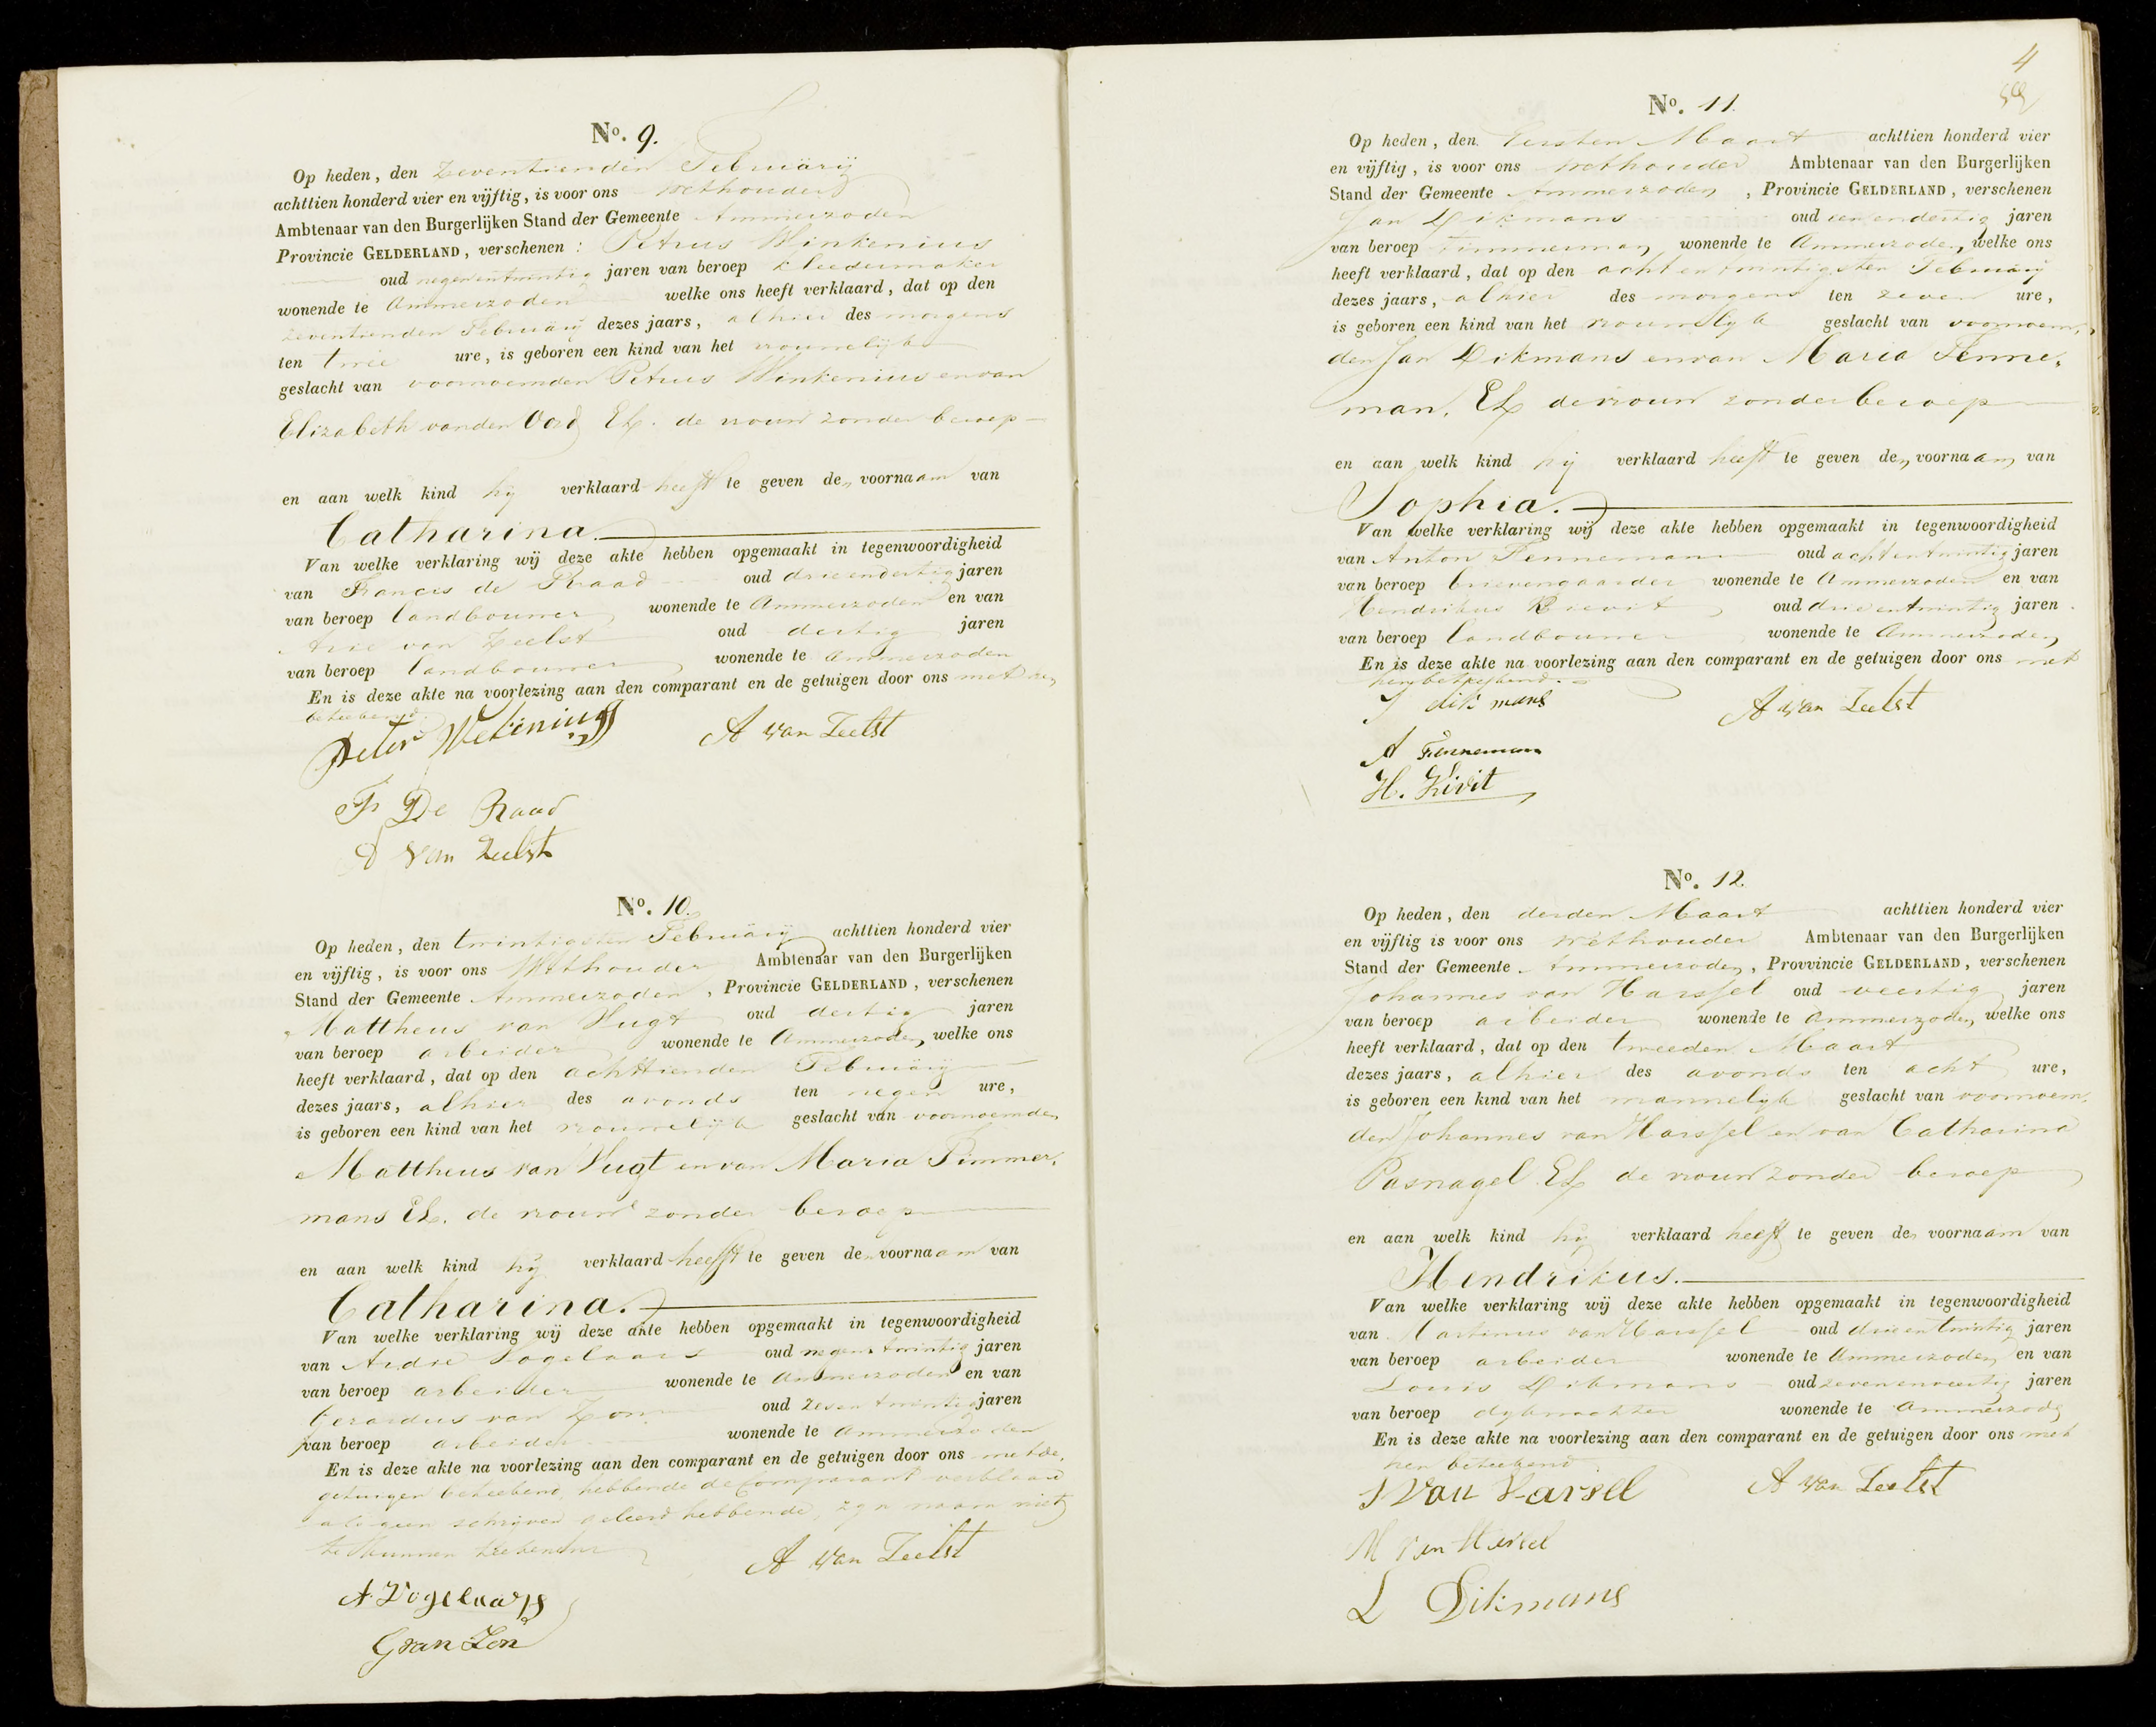 No. 9.
Op heden, den Zeventienden Februarij
achttien honderd vier en vijftig, is voor ons wethouder
Ambtenaar van den Burgerlijken Stand der Gemeente Ammerzoden
Provincie GELDERLAND, verschenen: Petrus Winkenius
oud negenentwintig jaren van beroep kleedermaker
wonende te Ammerzoden welke ons heeft verklaard, dat op den
zeventienden Februarij dezes jaars, alhier des morgens
ten twee ure, is geboren een kind van het vrouwelijk
geslacht van voornoemden Petrus Winkenius en van
Elizabeth van den Oord El. de vrouw zonder beroep
en aan welk kind hij verklaard heeft te geven den voornaam van
Catharina.
Van welke verklaring wij deze akte hebben opgemaakt in tegenwoordigheid
van Francis de Raad oud drieendertig jaren
van beroep landbouwer wonende te Ammerzoden en van
Arie van Zeelst oud dertig jaren
van beroep landbouwer wonende te Ammerzoden
En is deze akte na voorlezing aan den comparant en de getuigen door ons met hen
geteekend.
Peter Wekenius A van Zeelst
F De Raad
A van Zeelst
No. 10.
Op heden, den twintigsten Februarij achttien honderd vier
en vijftig, is voor ons Wethouder Ambtenaar van den Burgerlijken
Stand der Gemeente Ammerzoden, Provincie GELDERLAND, verschenen
Mattheus van Vugt oud dertig jaren
van beroep arbeider wonende te Ammerzoden, welke ons
heeft verklaard, dat op den achttienden Februarij
dezes jaars, alhier des avonds ten negen ure,
is geboren een kind van het vrouwelijk geslacht van voornoemden
Mattheus van Vugt en van Maria Timmer,
mans El. de vrouw zonder beroep
en aan welk kind hij verklaard heeft te geven den voornaam van
Catharina.
Van welke verklaring wij deze akte hebben opgemaakt in tegenwoordigheid
van Vogelaars oud negentwintig jaren
van beroep arbeider wonende te Ammerzoden en van
Gerardus van Zon oud zesentwintig jaren
van beroep arbeider wonende te Ammerzoden
En is deze akte na voorlezing aan den comparant en de getuigen door ons met de,
getuigen geteekend, hebbende de Comparant verklaard
als geen schrijven geleerd hebbende, zijn naam niet
te kunnen teekenen
A van Zeelst
A Vogelaars
G van Zon
4
No. 11.
Op heden, den Eersten Maart achttien honderd vier
en vijftig, is voor ons wethouder Ambtenaar van den Burgerlijken
Stand der Gemeente Ammerzoden, Provincie GELDERLAND, verschenen
Jan Dikmans oud eenendertig jaren
van beroep Timmerman, wonende te Ammerzoden, welke ons
heeft verklaard, dat op den achtentwintigsten Februarij
dezes jaars, alhier des morgens ten zeven ure,
is geboren een kind van het vrouwelijk geslacht van voornoem,
den Jan Dikmans en van Maria Fenne,
man, El de vrouw zonder beroep
en aan welk kind hij verklaard heeft te geven den voornaam van
Sophia.
Van welke verklaring wij deze akte hebben opgemaakt in tegenwoordigheid
van Anton Fenneman oud achtentwintig jaren
van beroep brievengaarder wonende te Ammerzoden en van
Hendrikus Kievit oud drieentwintig jaren
van beroep landbouwer wonende te Ammerzoden
En is deze akte na voorlezing aan den comparant en de getuigen door ons met
hen geteekend.
J dikmans A van Zeelst
A Fenneman
H. Kivit
No. 12.
Op heden, den derden Maart achttien honderd vier
en vijftig is voor ons wethouder Ambtenaar van den Burgerlijken
Stand der Gemeente Ammerzoden, Provvincie GELDERLAND, verschenen
Johannes van Harssel oud veertig jaren
van beroep arbeider wonende te Ammerzoden, welke ons
heeft verklaard, dat op den tweeden Maart
dezes jaars, alhier des avonds ten acht ure,
is geboren een kind van het mannelijk geslacht van voornoem,
den Johannes van Harssel en van Catharina
Pasnagel El de vrouw zonder beroep
en aan welk kind hij verklaard heeft te geven den voornaam van
Hendrikus.
Van welke verklaring wij deze akte hebben opgemaakt in tegenwoordigheid
van Martinus van Harssel oud drieentwintig jaren
van beroep arbeider wonende te Ammerzoden en van
Louis Dikmans oud zevenenveertig jaren
van beroep dijkwachter wonende te Ammerzode
En is deze akte na voorlezing aan den comparant en de getuigen door ons met
hen geteekend
J Van Harsel A van Zeelst
M van Hersel
L Dikmans